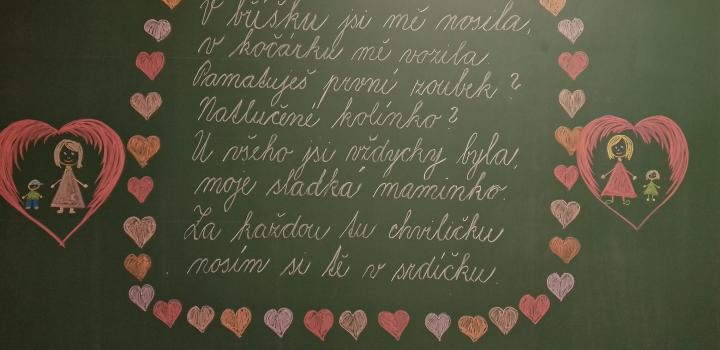 V bříšku jsi mě nosila,
v kočárku mě vozila.
Pamatuješ první zoubek?
Natlučené kolínko?
U všeho jsi vždycky byla,
moje sladká maminko.
Za každou tu chviličku
nosím si tě v srdíčku.